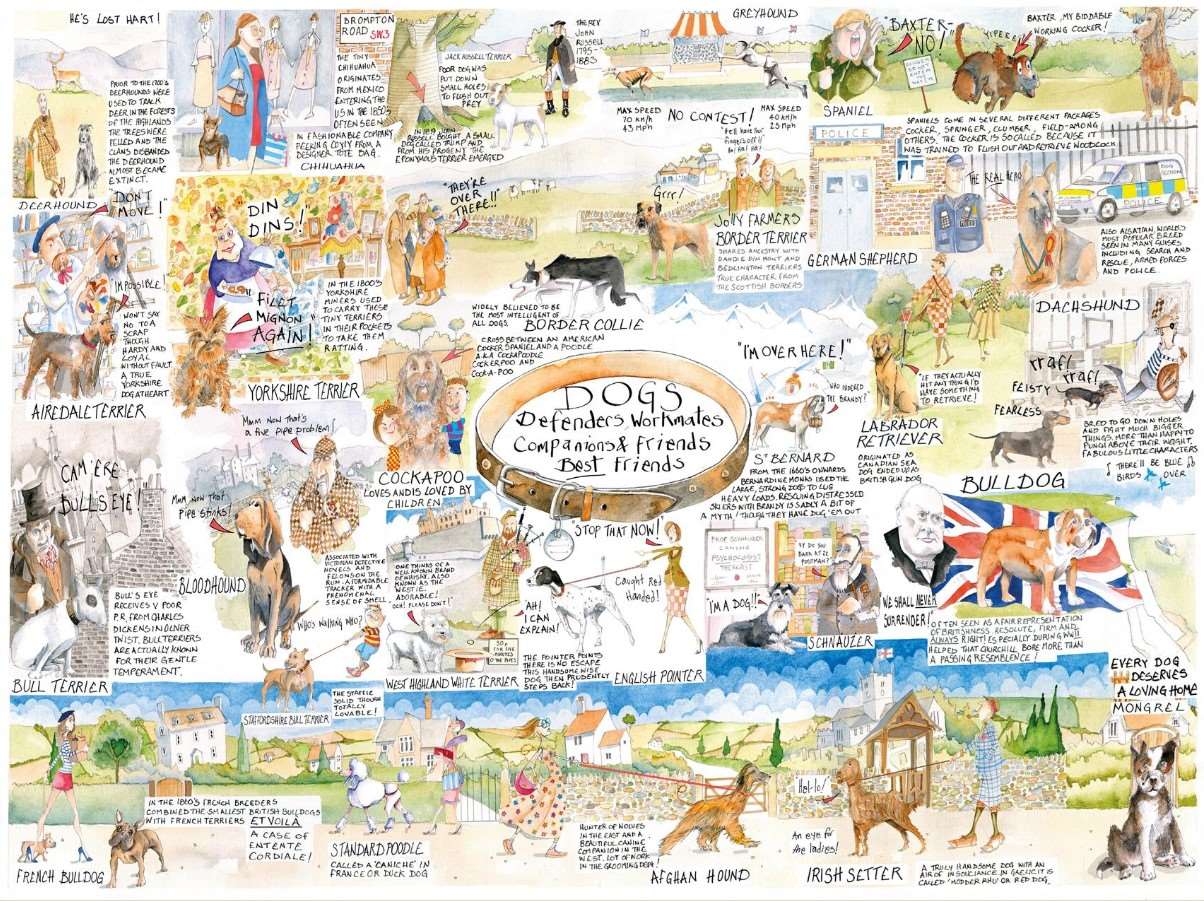 HE'S LOST HART!
PRIOR TO THE 1700'S
DEERHOUNDS WERE
USED TO TRACK
DEER IN THE FORESTS
OF THE HIGHLANDS
THE TREES WERE
FELLED AND THE
CLANS DISBANDED
THE DEERHOUND
ALMOST BECAME
EXTINCT.
DEERHOUND
BROMPTON
ROAD SW3
THE TINY
CHIHUAHUA
ORIGINATES
FROM MEXICO
ENTERING THE
US IN THE 1850'S
OFTEN SEEN
IN FASHIONABLE COMPANY
PEERING COYLY FROM A
DESIGNER TOTE BAG.
CHIHUAHUA
THE REV
JOHN
RUSSELL
1795-
1883
JACK RUSSELL TERRIER
POOR DOG WAS
PUT DOWN
SMALL HOLES
TO FLUSH OUT
PREY
IN 1819 JOHN
RUSSELL BOUGHT A SMALL
DOG CALLED TRUMP AND
FROM HIS PROGENY THE
EPONYMOUS TERRIER EMERGED
GREYHOUND
MAX SPEED
70 KM/H
43 MPH
NO CONTEST!
MAX SPEED
40 KM/H
25 MPH
"BAXTER-
NO!"
YIPEE!
BAXTER, MY BIDDABLE
WORKING COCKER!
SPANIEL
SPANIELS COME IN SEVERAL DIFFERENT PACKAGES
COCKER, SPRINGER, CLUMBER, FIELD-AMONG
OTHERS. THE COCKER IS SO CALLED BECAUSE IT
WAS TRAINED TO FLUSH OUT AND RETRIEVE WOODCOCK.
"DON'T
MOVE!"
"IMPOSSIBLE"
WON'T SAY
NO TO A
SCRAP
THOUGH
HARDY AND
LOYAL
WITHOUT FAULT
A TRUE
YORKSHIRE
DOG AT HEART
AIREDALE TERRIER
DIN
DINS!
"FILET
MIGNON
AGAIN!"
IN THE 1800'S
YORKSHIRE
MINERS USED
TO CARRY THESE
TINY TERRIERS
IN THEIR POCKETS
TO TAKE THEM
RATTING.
YORKSHIRE TERRIER
"THEY'RE
OVER
THERE!!"
WIDELY BELIEVED TO BE
THE MOST INTELLIGENT OF
ALL DOGS.
BORDER COLLIE
Grrr!
HA! HA!
JOLLY FARMERS
BORDER TERRIER
SHARES ANCESTRY WITH
DANDIE DINMONT AND
BEDLINGTON TERRIERS
TRUE CHARACTER FROM
THE SCOTTISH BORDERS
POLICE
THE REAL HERO
DOG
SECTION
POLICE
GERMAN SHEPHERD
ALSO ALSATIAN, WORLD'S
MOST POPULAR BREED
SEEN IN MANY GUISES
INCLUDING, SEARCH AND
RESCUE, ARMED FORCES
AND POLICE.
CROSS BETWEEN AN AMERICAN
COCKER SPANIEL AND A POODLE
A.K.A COCKAPOODLE
COCKERPOO AND
COCK-A-POO
COCKAPOO
LOVES AND IS LOVED BY
CHILDREN
DOGS
Defenders, Workmates
Companions & Friends
Best Friends
"I'M OVER HERE!"
"WHO ORDERED
THE BRANDY?"
ST BERNARD
FROM THE 1660'S ONWARDS
BERNARDINE MONKS USED THE
LARGE, STRONG DOGS TO LUG
HEAVY LOADS. RESCUING DISTRESSED
SKIERS WITH BRANDY IS SADLY A BIT OF
A MYTH! THOUGH THEY HAVE DUG 'EM OUT
"IF THEY ACTUALLY
HIT ANYTHING I'D
HAVE SOMETHING
TO RETRIEVE!
LABRADOR
RETRIEVER
ORIGINATED AS
CANADIAN SEA
DOG ENDED UP AS
BRITISH GUN DOG
DACHSHUND
rraf!
rraf!
FEISTY
FEARLESS
BRED TO GO DOWN HOLES
AND FIGHT MUCH BIGGER
THINGS, MORE THAN HAPPY TO
PUNCH ABOVE THEIR WEIGHT.
FABULOUS LITTLE CHARACTERS
THERE'LL BE BLUE
BIRDS OVER
CAM'ERE
BULLS EYE!
BULL'S EYE
RECEIVES V POOR
P.R. FROM CHARLES
DICKENS IN OLIVER
TWIST, BULL TERRIERS
ARE ACTUALLY KNOWN
FOR THEIR GENTLE
TEMPERAMENT.
BULL TERRIER
Mmm Now that's
a five pipe problem!
Mmm Now that
pipe stinks!
BLOODHOUND
ASSOCIATED WITH
VICTORIAN DETECTIVE
NOVELS AND
FELONS ON THE
RUN. A FORMIDABLE
TRACKER WITH A
PHENOMENAL
SENSE OF SMELL
WHO'S WALKING WHO?
THE STAFFIE
SOLID THOUGH
TOTALLY
LOVABLE!
STAFFORDSHIRE BULL TERRIER
ONE THINKS OF A
WELL KNOWN BRAND
OF WHISKY. ALSO
KNOWN AS THE
WESTIE.
ADORABLE!
OCH! PLEASE DON'T!"
WEST HIGHLAND WHITE TERRIER
"STOP THAT NOW!"
Caught Red
Handed!
AH!
I CAN
EXPLAIN!
THE POINTER POINTS
THERE IS NO ESCAPE
THIS HANDSOME WISE
DOG THEN PRUDENTLY
STEPS BACK!
ENGLISH POINTER
PROF SCHNAUZER
CANINE
PSYCHOLOGIST
THERAPIST
"I'M A DOG!!"
SCHNAUZER
BULLDOG
WE SHALL NEVER
SURRENDER!
OFTEN SEEN AS A FAIR REPRESENTATION
OF BRITISHNESS. RESOLUTE, FIRM AND
ALWAYS RIGHT! ESPECIALLY DURING WWII
HELPED THAT CHURCHILL BORE MORE THAN
A PASSING RESEMBLENCE!
EVERY DOG
DESERVES
A LOVING HOME
MONGREL
IN THE 1860'S FRENCH BREEDERS
COMBINED THE SMALLEST BRITISH BULLDOGS
WITH FRENCH TERRIERS ET VOILÀ
A CASE OF
ENTENTE
CORDIALE!
FRENCH BULLDOG
STANDARD POODLE
CALLED A 'CANICHE' IN
FRANCE OR DUCK DOG
HUNTER OF WOLVES
IN THE EAST AND A
BEAUTIFUL CANINE
COMPANION IN THE
WEST. LOT OF WORK
IN THE GROOMING DEPT!
AFGHAN HOUND
Hel-lo!
An eye for
the ladies!
IRISH SETTER
A TRULY HANDSOME DOG WITH AN
AIR OF INSOUCIANCE. IN GAELIC IT IS
CALLED 'MODDER RHU' OR RED DOG.